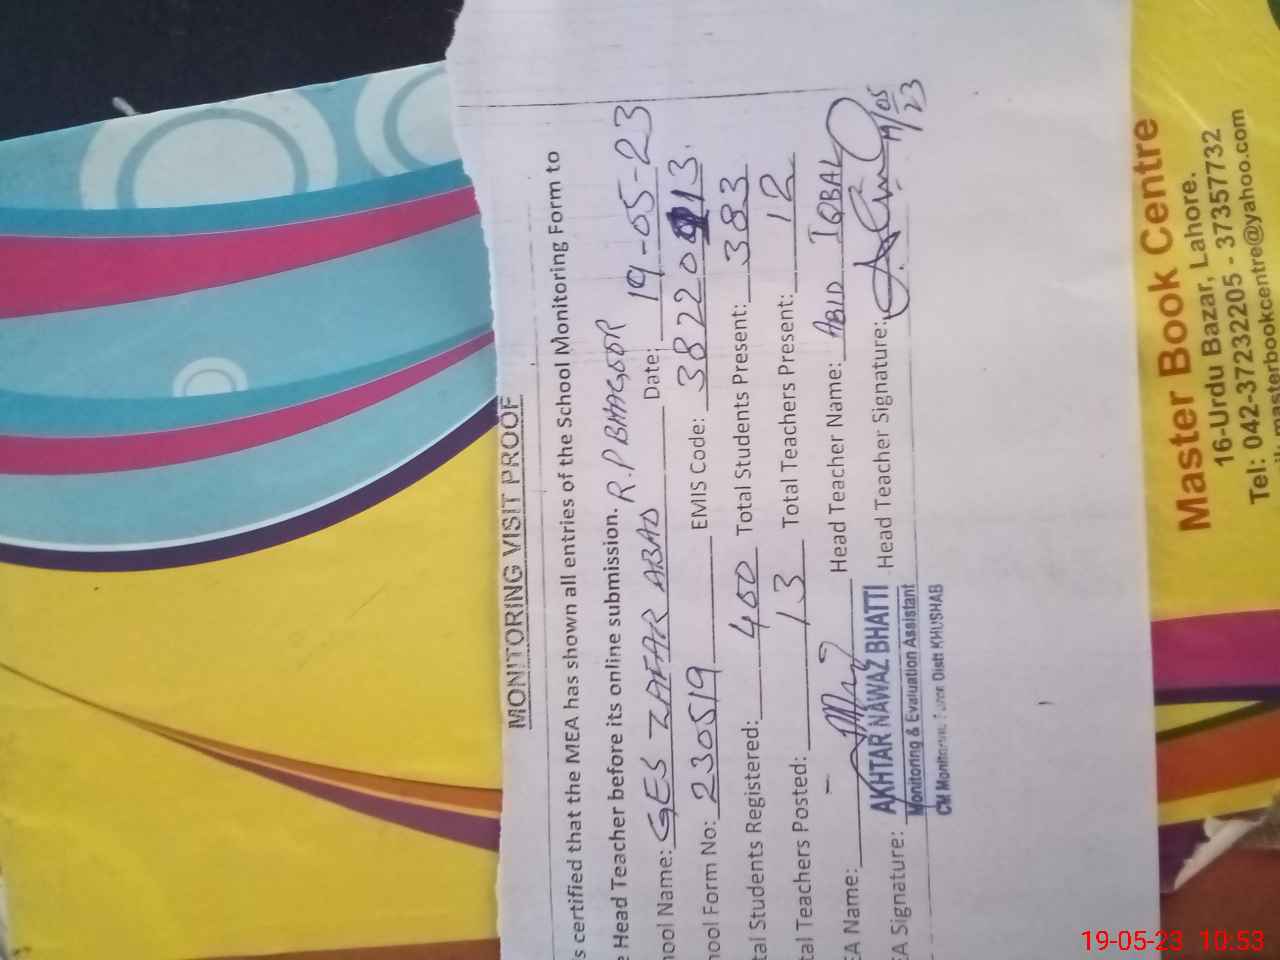 MONITORING VISIT PROOF
s certified that the MEA has shown all entries of the School Monitoring Form to
e Head Teacher before its online submission. R.P BHAGOOR
hool Name: GES ZAFAR ABAD Date: 19-05-23
hool Form No: 230519 EMIS Code: 38220113.
tal Students Registered: 400 Total Students Present: 383
tal Teachers Posted: 13 Total Teachers Present: 12
EA Name: Head Teacher Name: ABID IQBAL
EA Signature: Head Teacher Signature: 19/05
23
AKHTAR NAWAZ BHATTI
Monitoring & Evaluation Assistant
CM Monitoring Force Distt KHUSHAB
Master Book Centre
16-Urdu Bazar, Lahore.
Tel: 042-37232205 - 37357732
masterbookcentre@yahoo.com
19-05-23 10:53